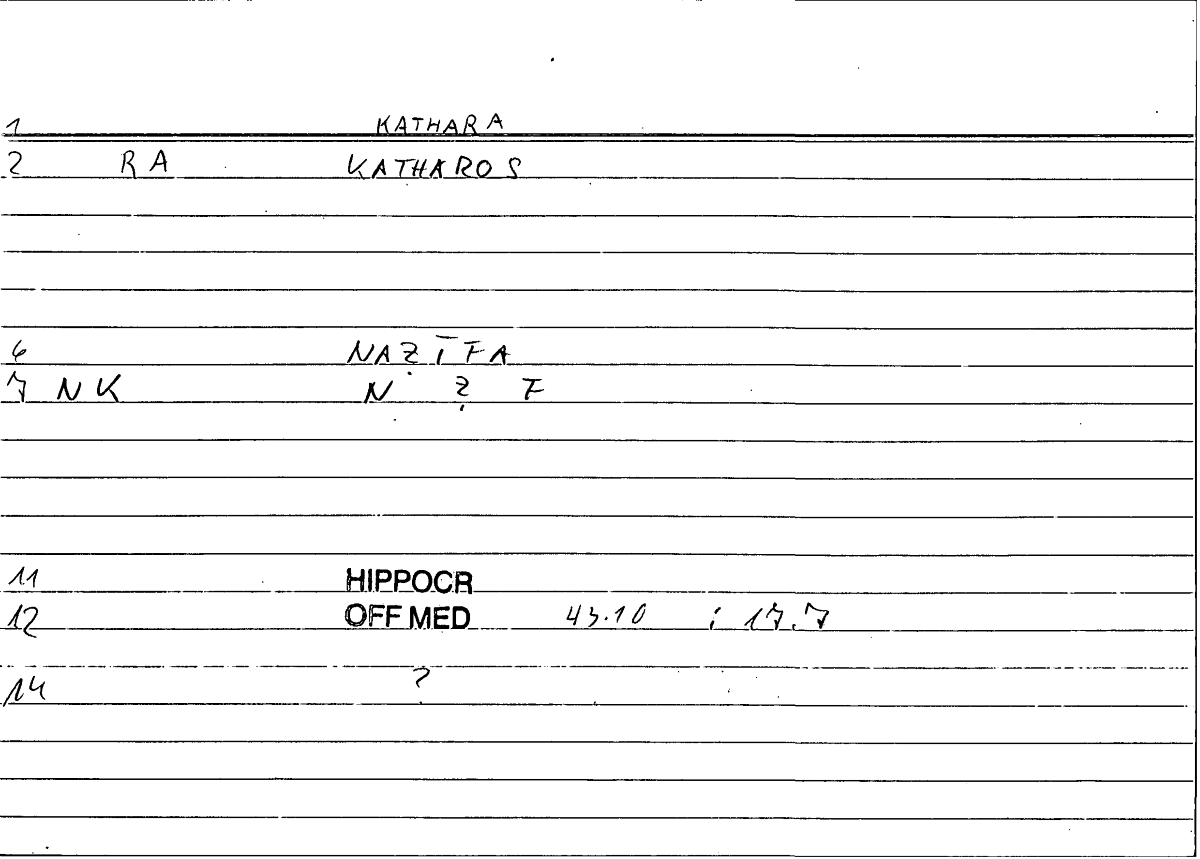 1 KATHARA
2 RA KATHAROS
6 NAẒĪFA
7 NK N Ẓ F
11 HIPPOCR
12 OFF MED 43.10 ; 17.7
14 ?